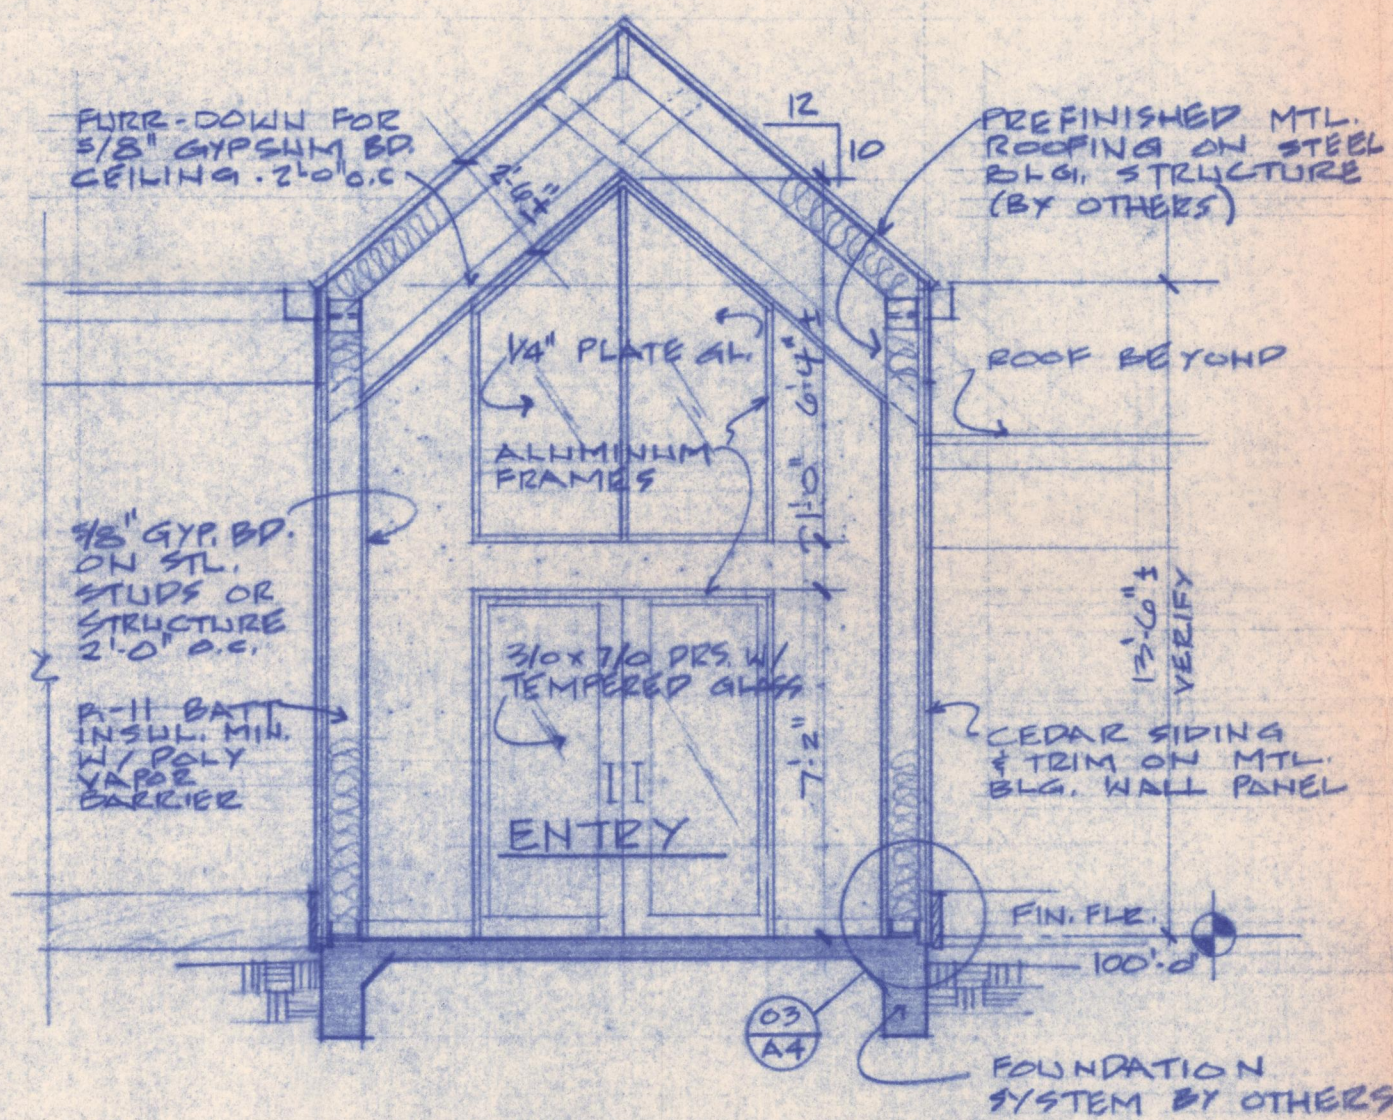 FURR-DOWN FOR
5/8" GYPSUM BD.
CEILING. 2'-0" O.C
2'-6"
12
10
PREFINISHED MTL.
ROOFING ON STEEL
BLG. STRUCTURE
(BY OTHERS)
1/4" PLATE GL.
ALUMINUM
FRAMES
6'-4" ±
1'-0"
7'-2"
ROOF BEYOND
5/8" GYP. BD.
ON STL.
STUDS OR
STRUCTURE
2'-0" O.C.
R-11 BATT
INSUL. MIN.
W/ POLY
VAPOR
BARRIER
3/0 x 7/0 DRS. W/
TEMPERED GLASS
ENTRY
13'-6" ±
VERIFY
CEDAR SIDING
& TRIM ON MTL.
BLG. WALL PANEL
FIN. FLR.
100'-0"
03
A4
FOUNDATION
SYSTEM BY OTHERS